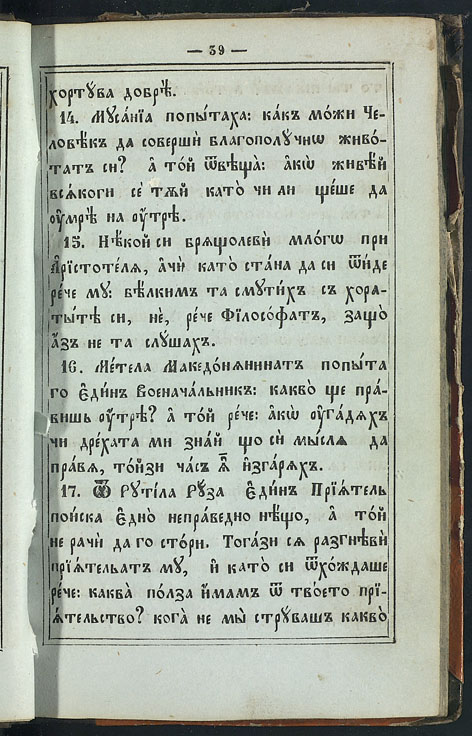 — 39 —
хортꙋва добрѣ.
14. Мꙋса́нїа попы́таха: ка́къ мо́жи Че-
ловѣ́къ да совершѝ благополꙋ́чнѡ живо́-
татъ си? а҆ то́й ѿвѣща̀: а҆кѡ живѣ́й
вся́коги се҆ тѫ́й като̀ чи ли ще́ше да
оу҆мре́ на оу҆́трѣ.
15. Нѣ́кой си брящолеви̏ мло́гѡ при
А҆рїсто́теля, а҆чѝ като̀ ста́на да си ѿи́де
ре́че мꙋ: бѣ́лкимъ та смꙋти́хъ съ хора-
ты́тѣ си, нѐ, ре́че Фїлосо́фатъ, защо̀
а҆́зъ не та слꙋ́шахъ.
16. Ме́тела Македо́нянинатъ попы́та
го Е҆ди́нъ Военача́льникъ: какво̀ ще пра́-
вишь оу҆́трѣ? а҆ то́й ре́че: а҆́кѡ оу҆га́дяхъ
чи дре́хата ми зна́й що си̏ мы́сля да
пра́вя, то́йзи ча́съ ѫ҆̀ и҆зга́ряхъ.
17. Ѿ Рꙋти́ла Рꙋ́за Е҆ди́нъ Прїѧ́тель
пои́ска Е҆дно̀ непра́ведно нѣ́що, а҆ то́й
не рачѝ да го сто́ри. Тога́зи ся разгнѣвѝ
прїя́тельатъ мꙋ, и҆ като̀ си ѿхо́ждаше
ре́че: каква̀ по́лза и҆́мамъ ѿ тво́ето прї-
я́тельство? кога̀ не мы̀ стрꙋ́вашъ какво̀